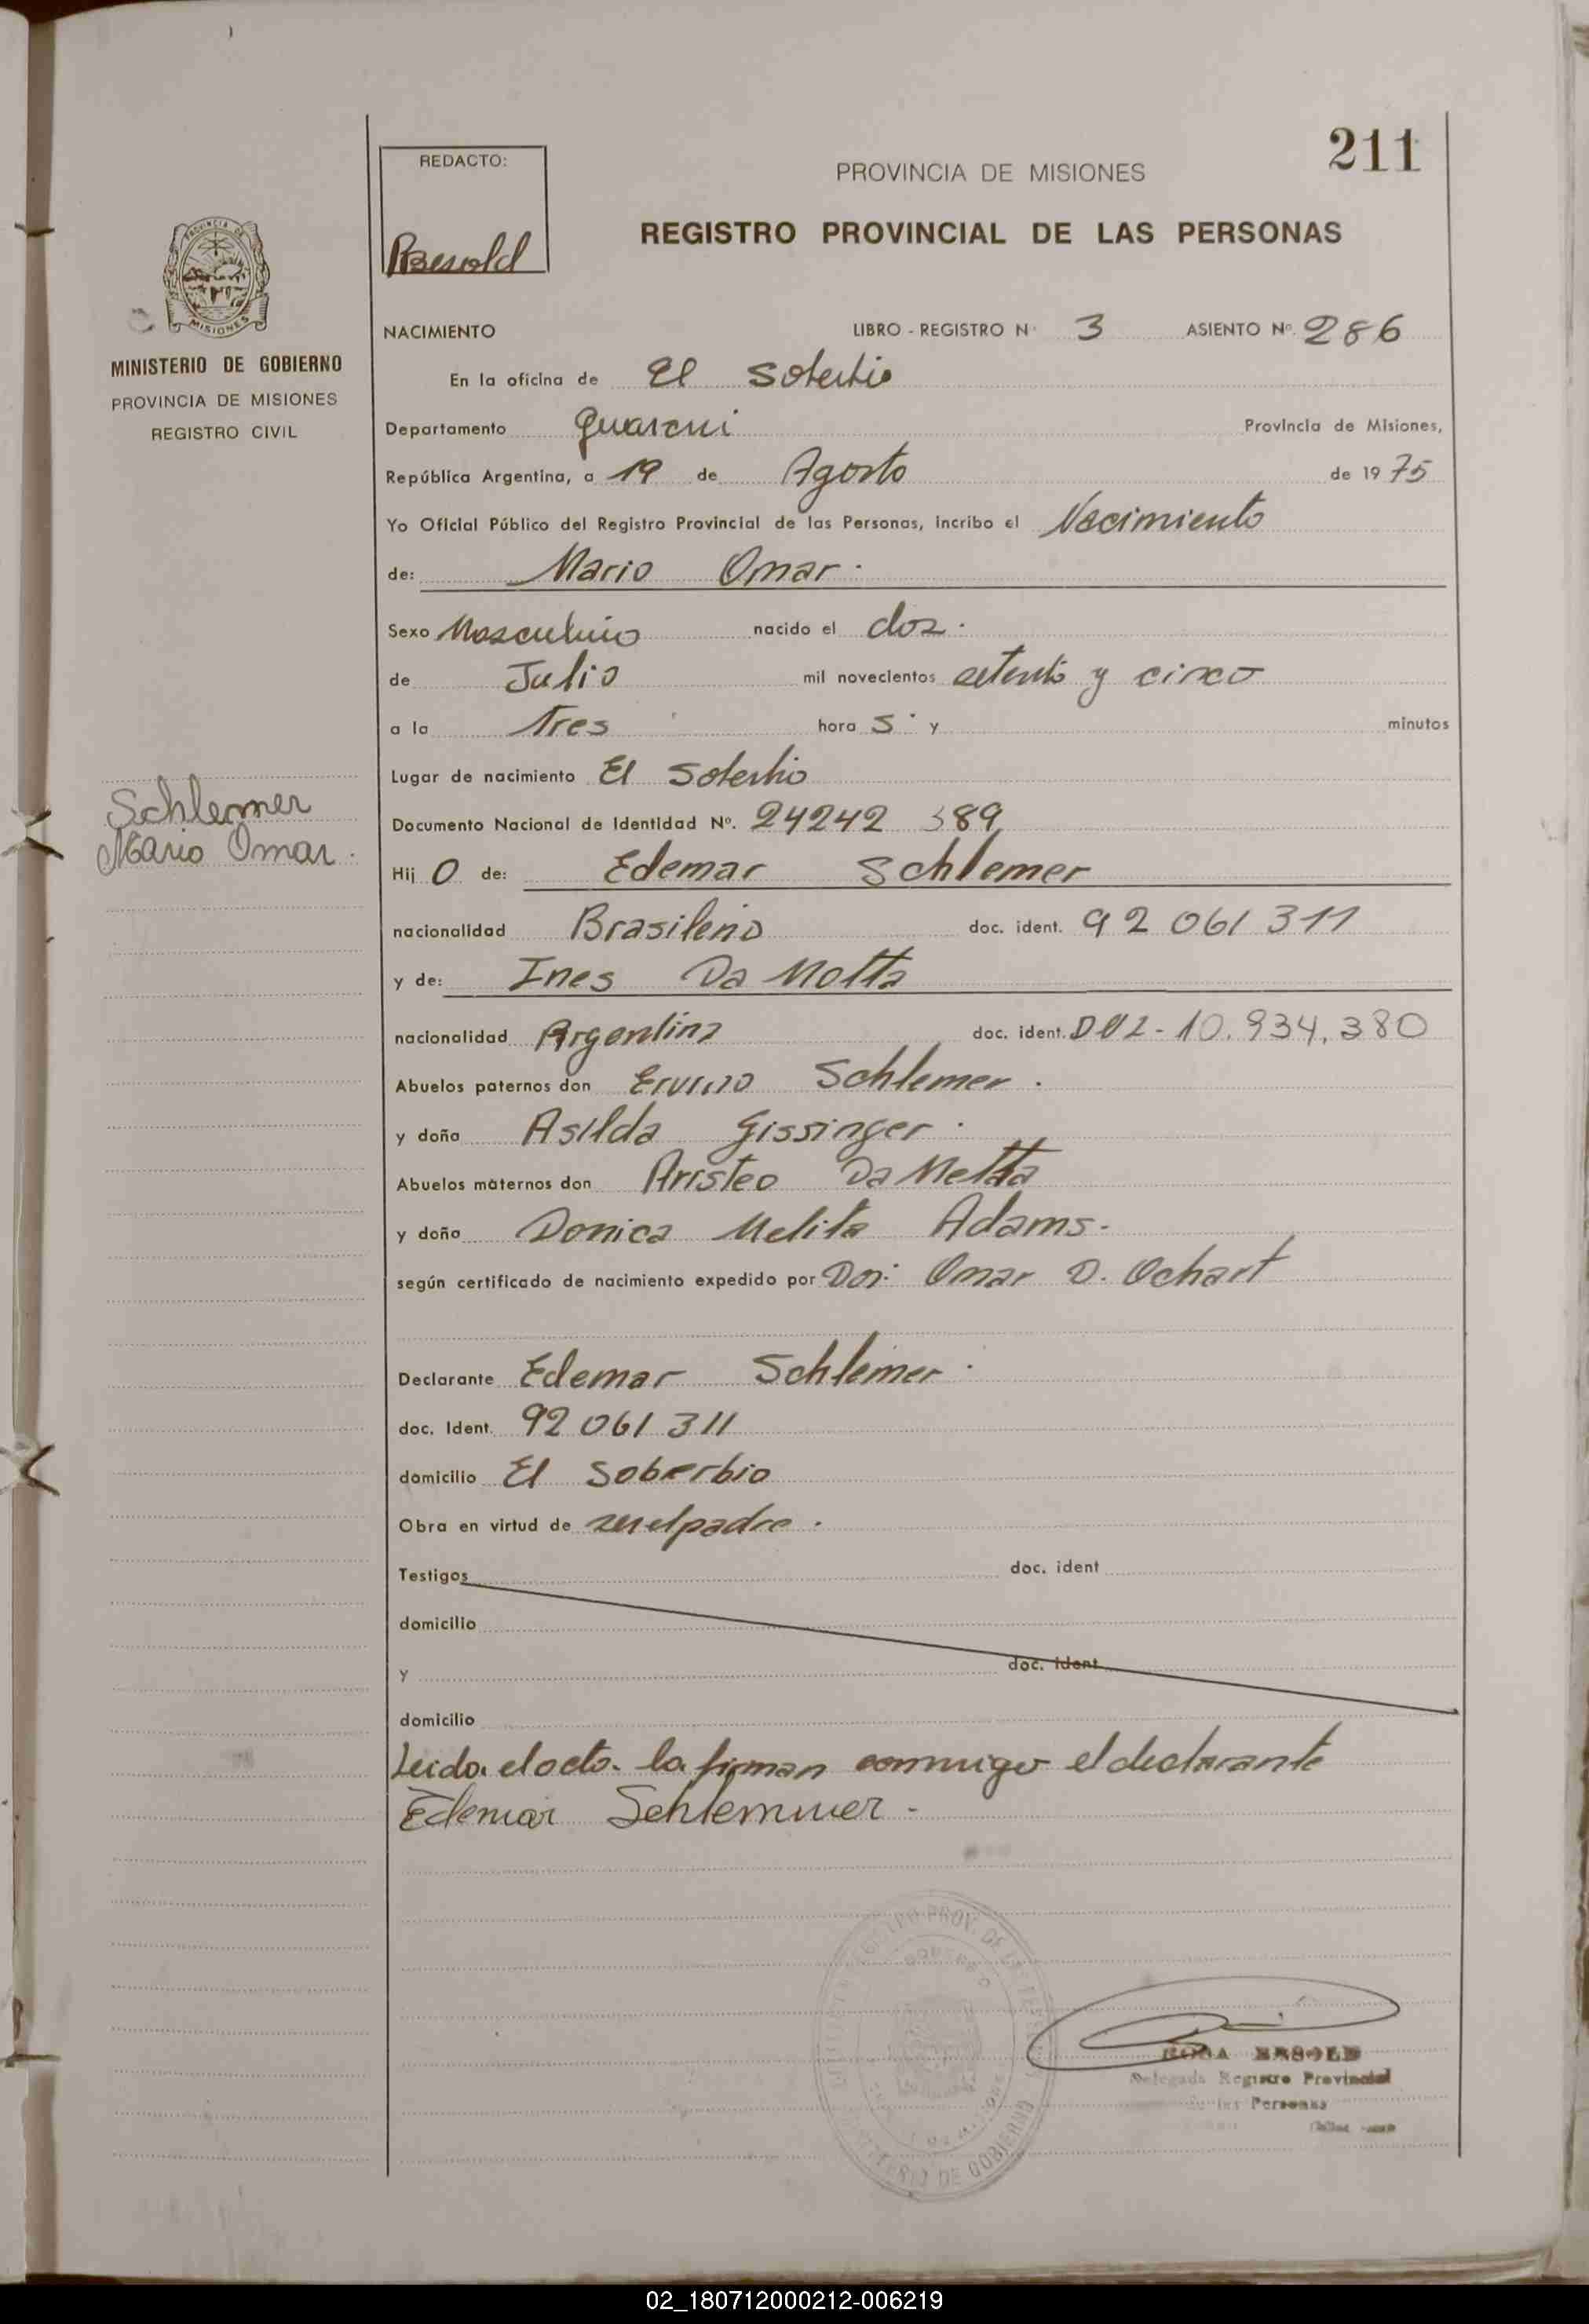 211
REDACTO:
PROVINCIA DE MISIONES
REGISTRO PROVINCIAL DE LAS PERSONAS
PROVINCIA DE
MISIONES
MINISTERIO DE GOBIERNO
PROVINCIA DE MISIONES
REGISTRO CIVIL
NACIMIENTO LIBRO - REGISTRO Nº 3 ASIENTO Nº 286
En la oficina de El Soberbio
Departamento Guarani Provincia de Misiones,
República Argentina, a 19 de Agosto de 1975
Yo Oficial Público del Registro Provincial de las Personas, incribo el Nacimiento
de: Mario Omar.
Sexo Masculino nacido el dos.
de Julio mil novecientos setenta y cinco
a la tres hora s y minutos
Lugar de nacimiento El Soberbio
Schlemer
Mario Omar.
Documento Nacional de Identidad Nº. 24242 389
Hij o de: Edemar Schlemer
nacionalidad Brasileño doc. ident. 92 061 311
y de: Ines Da Motta
nacionalidad Argentina doc. ident. 10.934.380
Abuelos paternos don Ervino Schlemer.
y doña Asilda Gissinger.
Abuelos maternos don Aristeo Da Motta
y doña Donica Melita Adams.
según certificado de nacimiento expedido por Omar D. Ochart
Declarante Edemar Schlemer.
doc. Ident. 92 061 311
domicilio El Soberbio
Obra en virtud de ser el padre.
Testigos doc. ident
domicilio
y doc. ident
domicilio
Leida el acta la firman conmigo el declarante
Edemar Schlemmer.
Delegada Registro Provincial
de las Personas
02_180712000212-006219